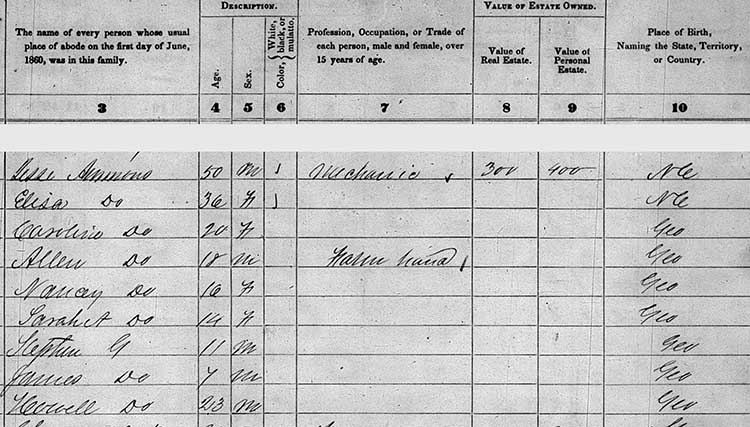 DESCRIPTION. VALUE OF ESTATE OWNED.
The name of every person whose usual place of abode on the first day of June, 1860, was in this family.
Age.
Sex.
Color, White, black, or mulatto.
Profession, Occupation, or Trade of each person, male and female, over 15 years of age.
Value of Real Estate.
Value of Personal Estate.
Place of Birth, Naming the State, Territory, or Country.
3 4 5 6 7 8 9 10
Jesse Ammons 50 m Mechanic 300 400 NC
Elisa Do 36 F NC
Caroline Do 20 F Geo
Allen Do 18 m Farm hand Geo
Nancy Do 16 F Geo
Sarah A Do 14 F Geo
Stephen G 11 m Geo
James Do 7 m Geo
Howell Do 23 m Geo